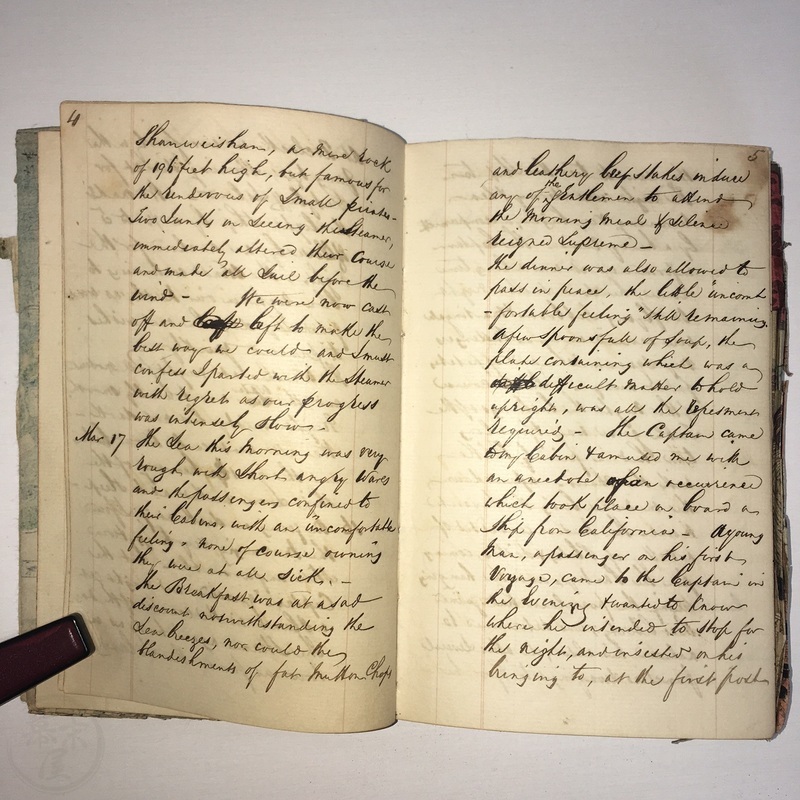 4
Shanweishan, a mere rock
of 196 feet high, but famous for
the rendevous of Small pirates -
Two Junks on Seeing the Steamer,
immediately altered their course
and made all Sail before the
wind - We were now cast
off and left to make the
best way we could and I must
confess I parted with the Steamer
with regret as our progress
was intensely slow. -
Mar 17 The Sea this morning was very
rough with Short angry waves
and the passengers confined to
their Cabins, with an "uncomfortable
feeling" none of course owning
they were at all Sick. -
The Breakfast was at a sad
discount notwithstanding the
Sea breezes, nor could the
blandishments of fat Mutton Chops
5
and leathery beef stakes induce
any of the Gentlemen to attend
the Morning meal & silence
reigned Supreme -
The dinner was also allowed to
pass in peace, the little "uncomf
-fortable feeling" still remaining.
A few spoonsfull of Soup, the
plate containing which was a
difficult matter to hold
upright, was all the
required - The Captain came
to my Cabin & amused me with
an anecdote of an occurrence
which took place on board a
Ship from California - A young
man, a passenger on his first
Voyage, came to the Captain in
the Evening & wanted to know
where he intended to stop for
the night, and insested on his
bringing to, at the first post